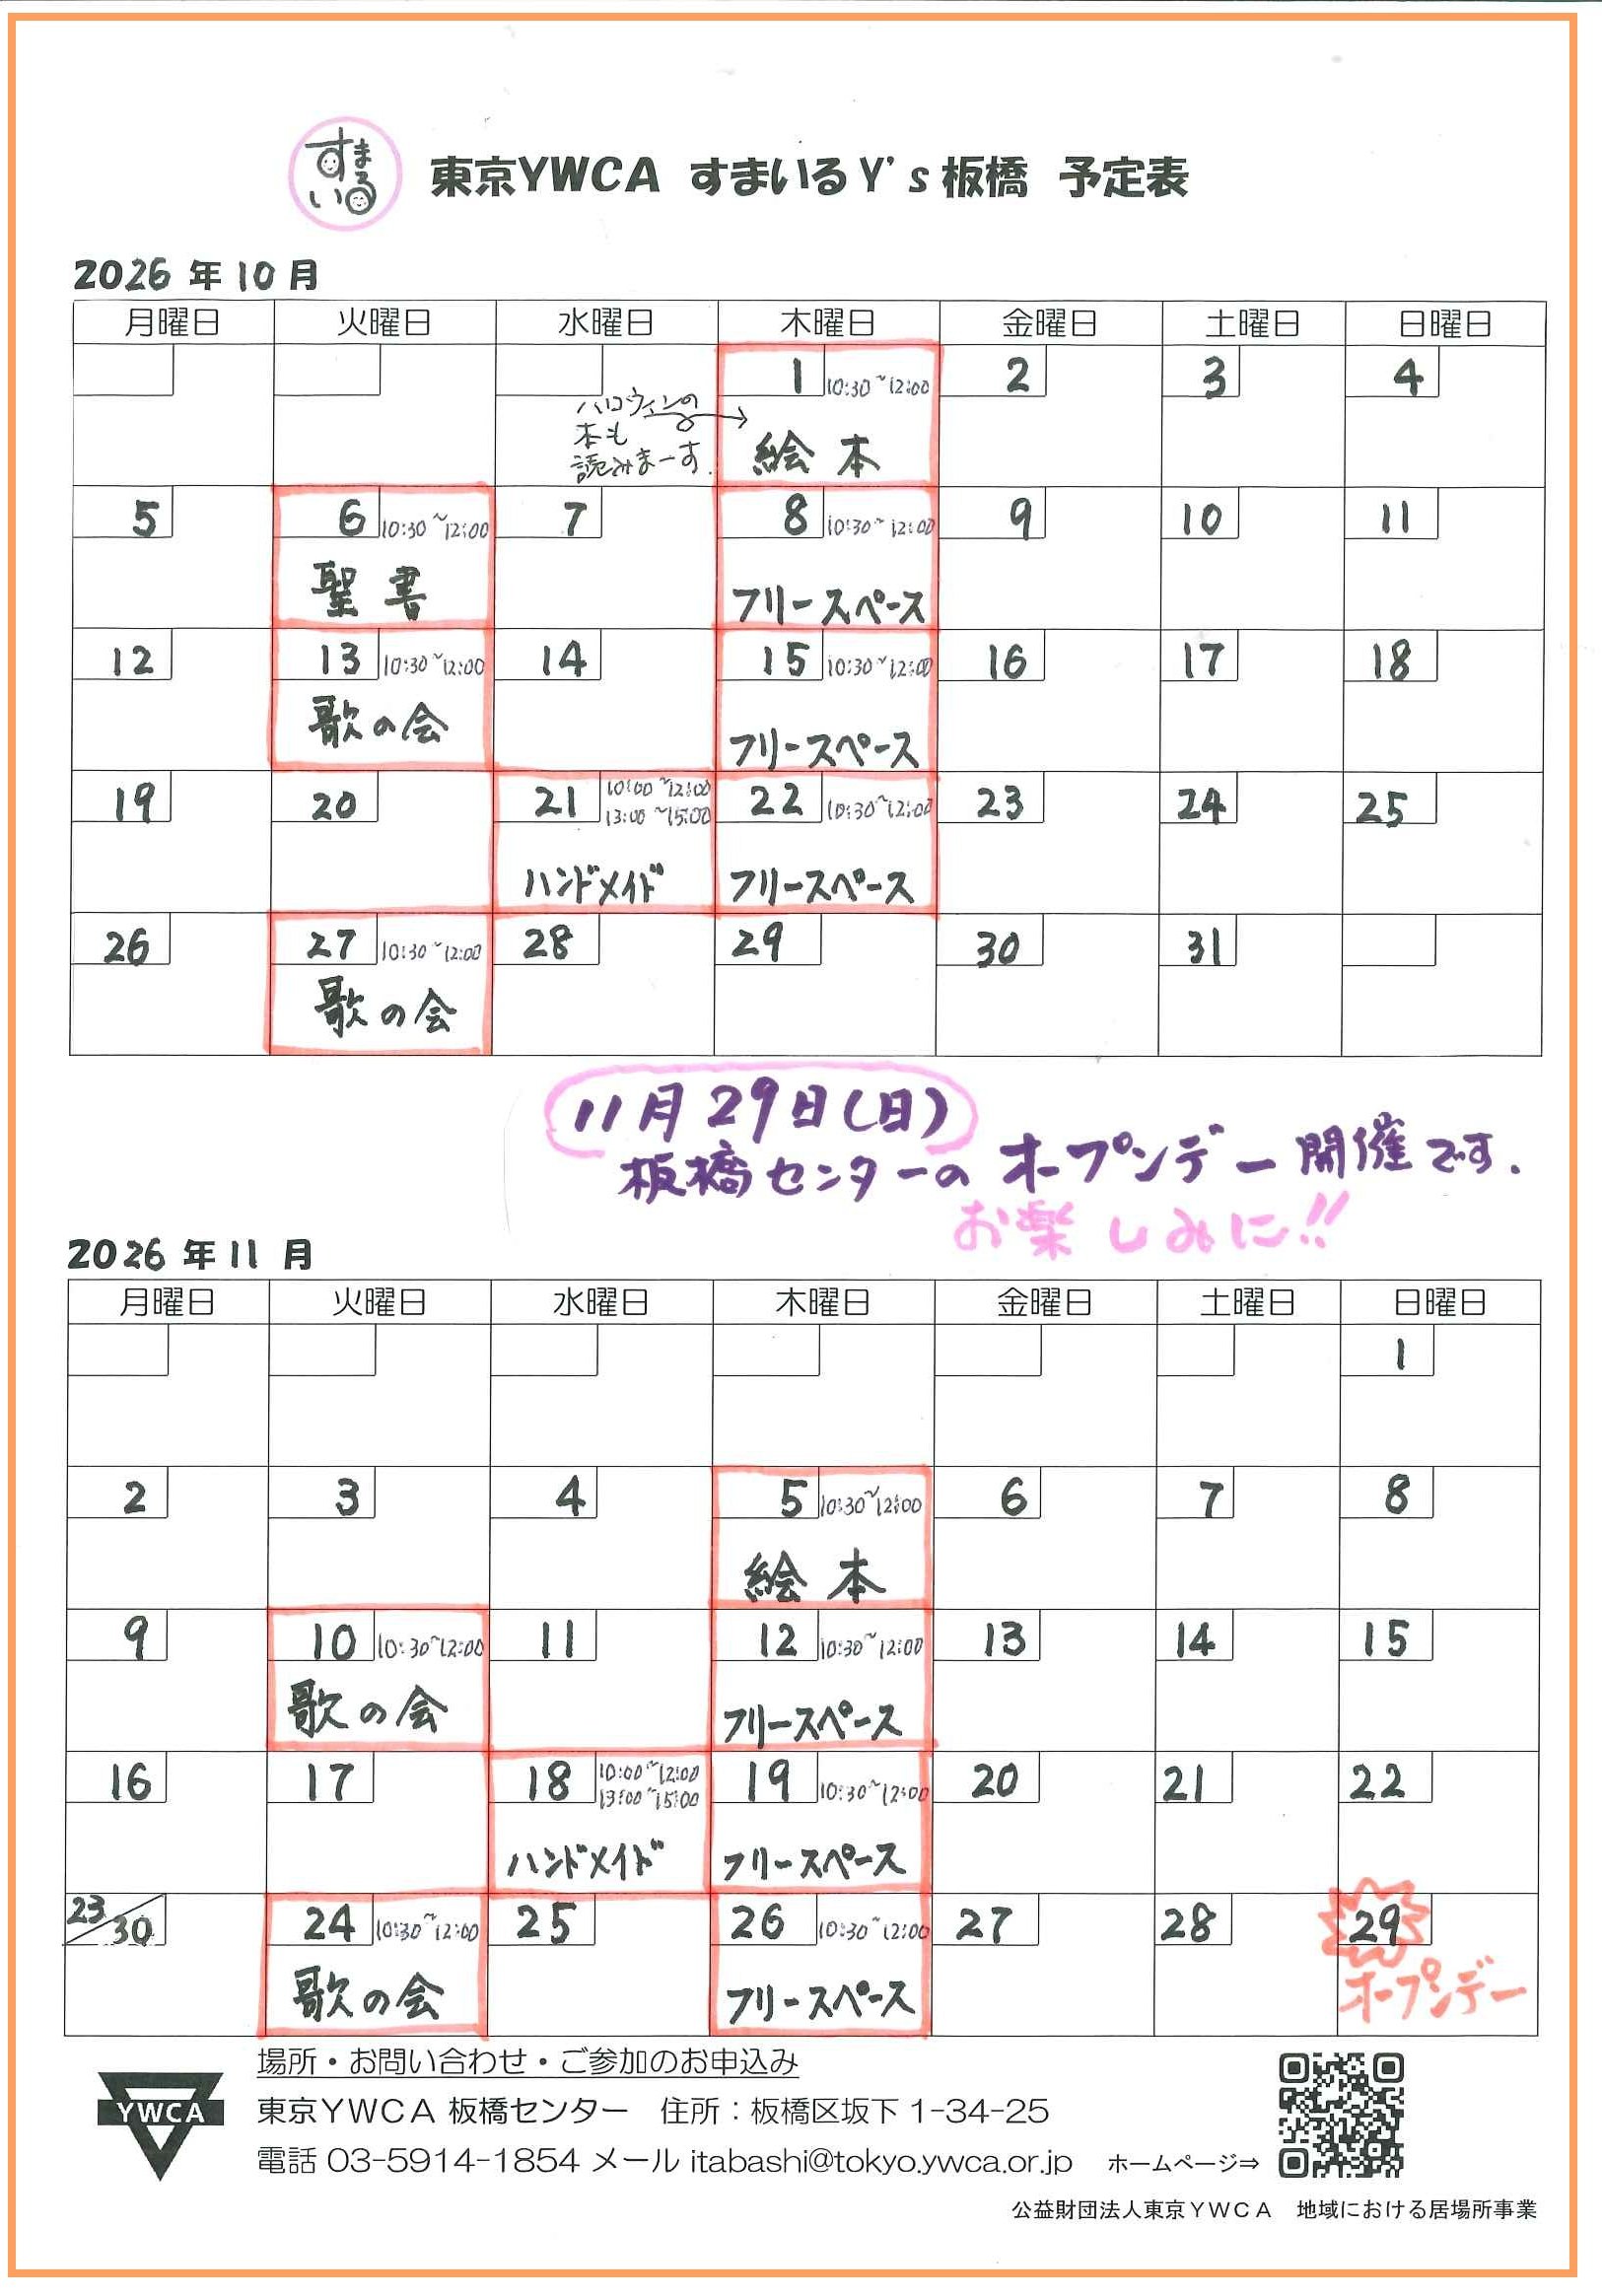 すまいる
東京YWCA すまいるY's板橋 予定表
2026年10月
月曜日 火曜日 水曜日 木曜日 金曜日 土曜日 日曜日
1 10:30~12:00 2 3 4
ハロウィンの
本も
読みまーす.
絵本
5 6 10:30~12:00 7 8 10:30~12:00 9 10 11
聖書 フリースペース
12 13 10:30~12:00 14 15 10:30~12:00 16 17 18
歌の会 フリースペース
19 20 21 10:00~12:00 13:00~15:00 22 10:30~12:00 23 24 25
ハンドメイド フリースペース
26 27 10:30~12:00 28 29 30 31
歌の会
11月29日(日)
板橋センターの オープンデー開催です.
お楽しみに!!
2026年11月
月曜日 火曜日 水曜日 木曜日 金曜日 土曜日 日曜日
1
2 3 4 5 10:30~12:00 6 7 8
絵本
9 10 10:30~12:00 11 12 10:30~12:00 13 14 15
歌の会 フリースペース
16 17 18 10:00~12:00 13:00~15:00 19 10:30~12:00 20 21 22
ハンドメイド フリースペース
23/30 24 10:30~12:00 25 26 10:30~12:00 27 28 29
歌の会 フリースペース オープンデー
場所・お問い合わせ・ご参加のお申込み
YWCA
東京YWCA 板橋センター 住所：板橋区坂下1-34-25
電話 03-5914-1854 メール itabashi@tokyo.ywca.or.jp ホームページ⇒
公益財団法人東京YWCA 地域における居場所事業